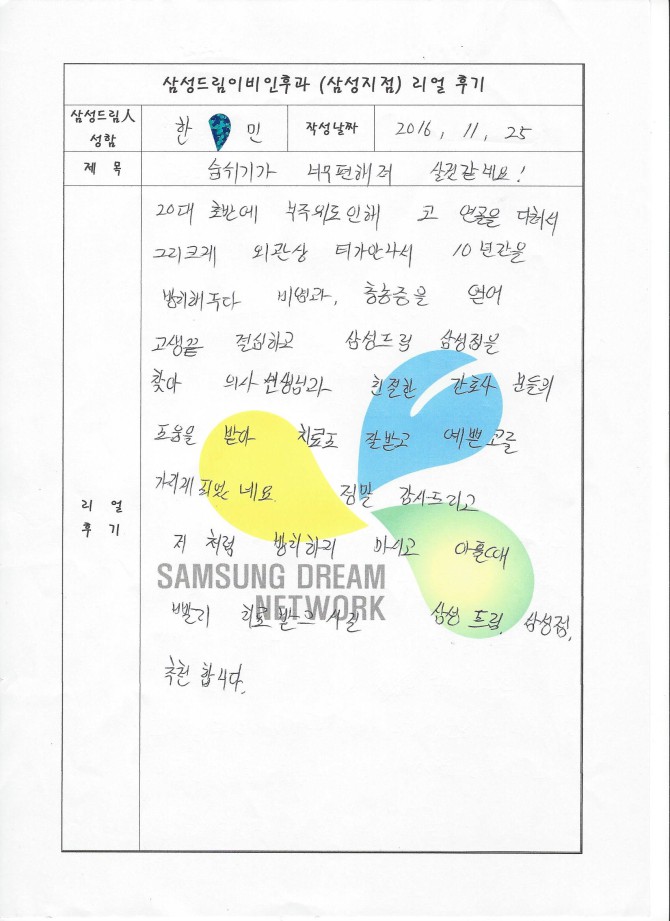 삼성드림이비인후과 (삼성지점) 리얼 후기
삼성드림人
성함
한 민
작성날짜
2016, 11, 25
제 목
숨쉬기가 너무편해져 살것같네요!
20대 초반에 부주의로인해 코 연골을 다쳐서
그리크게 외관상 티가안나서 10년간을
방치해두다 비염과, 축농증을 얻어
고생끝 결심하고 삼성드림 삼성점을
찾아 의사선생님과 친절한 간호사 분들의
도움을 받아 치료도 잘받고 예쁜코를
가지게되었네요. 정말 감사드리고
저 처럼 방치하지 마시고 아플때
빨리 치료받으시길 삼성 드림, 삼성점,
추천 합니다.
리 얼
후 기
SAMSUNG DREAM
NETWORK